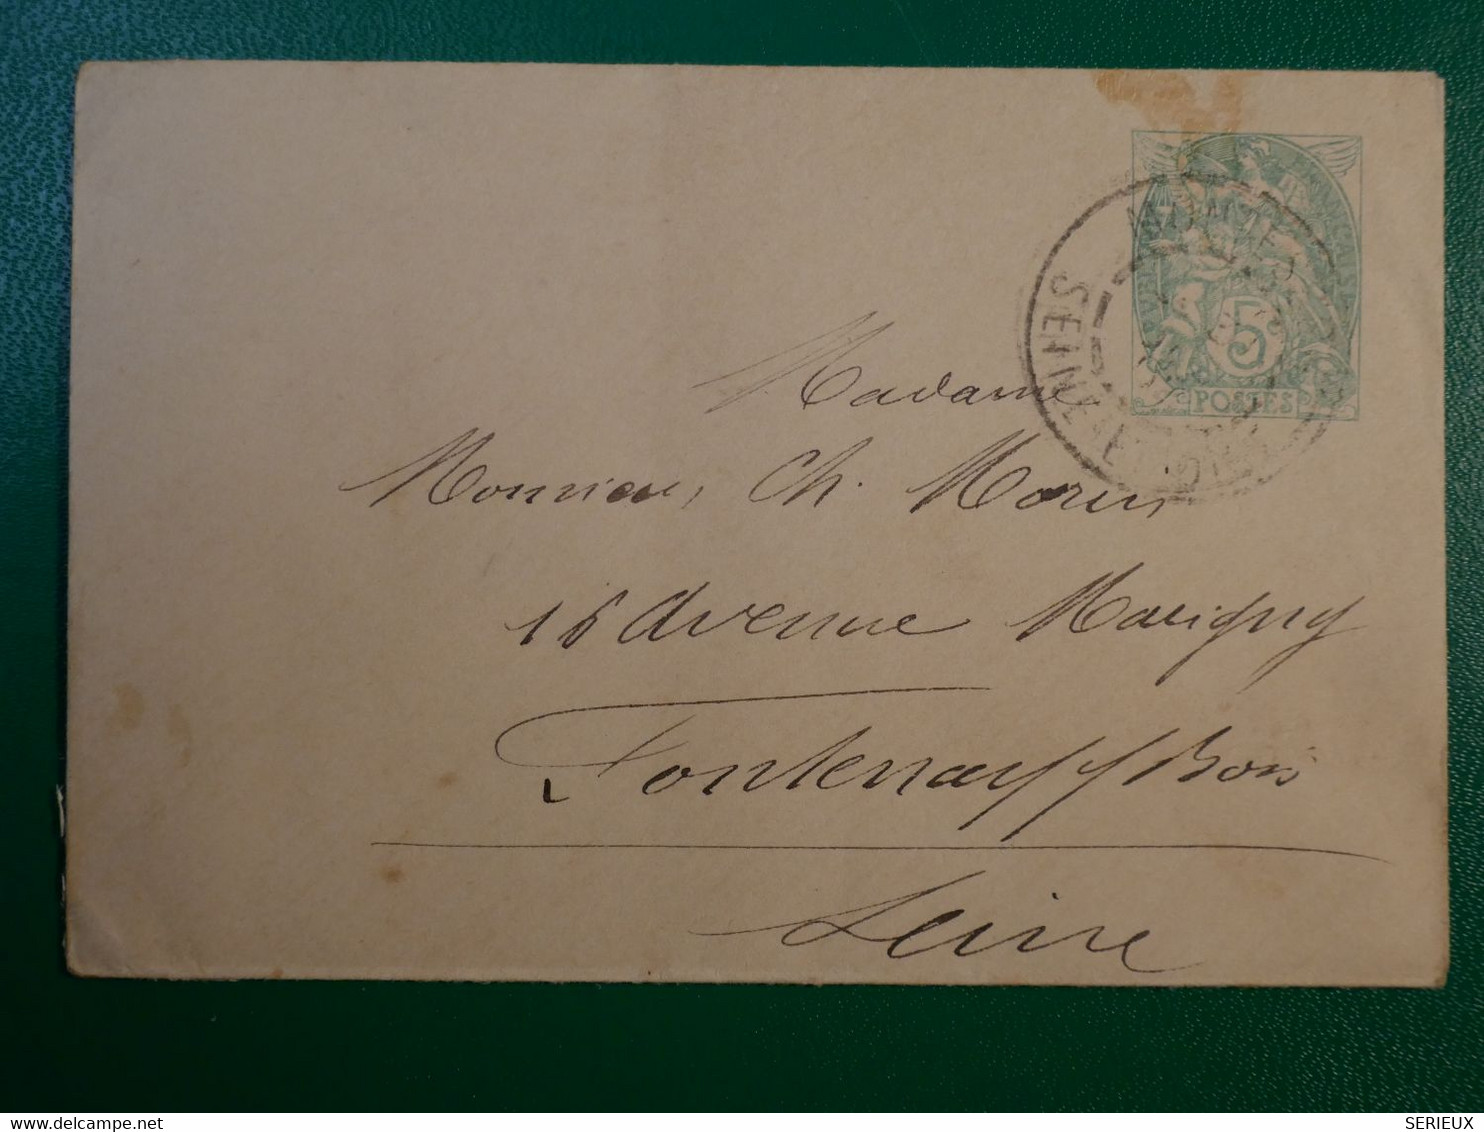 5
POSTES
SEINE ET OISE
Madame
Monsieur, Ch. Morin
16 Avenue Marigny
Fontenay s/ Bois
Seine
SERIEUX